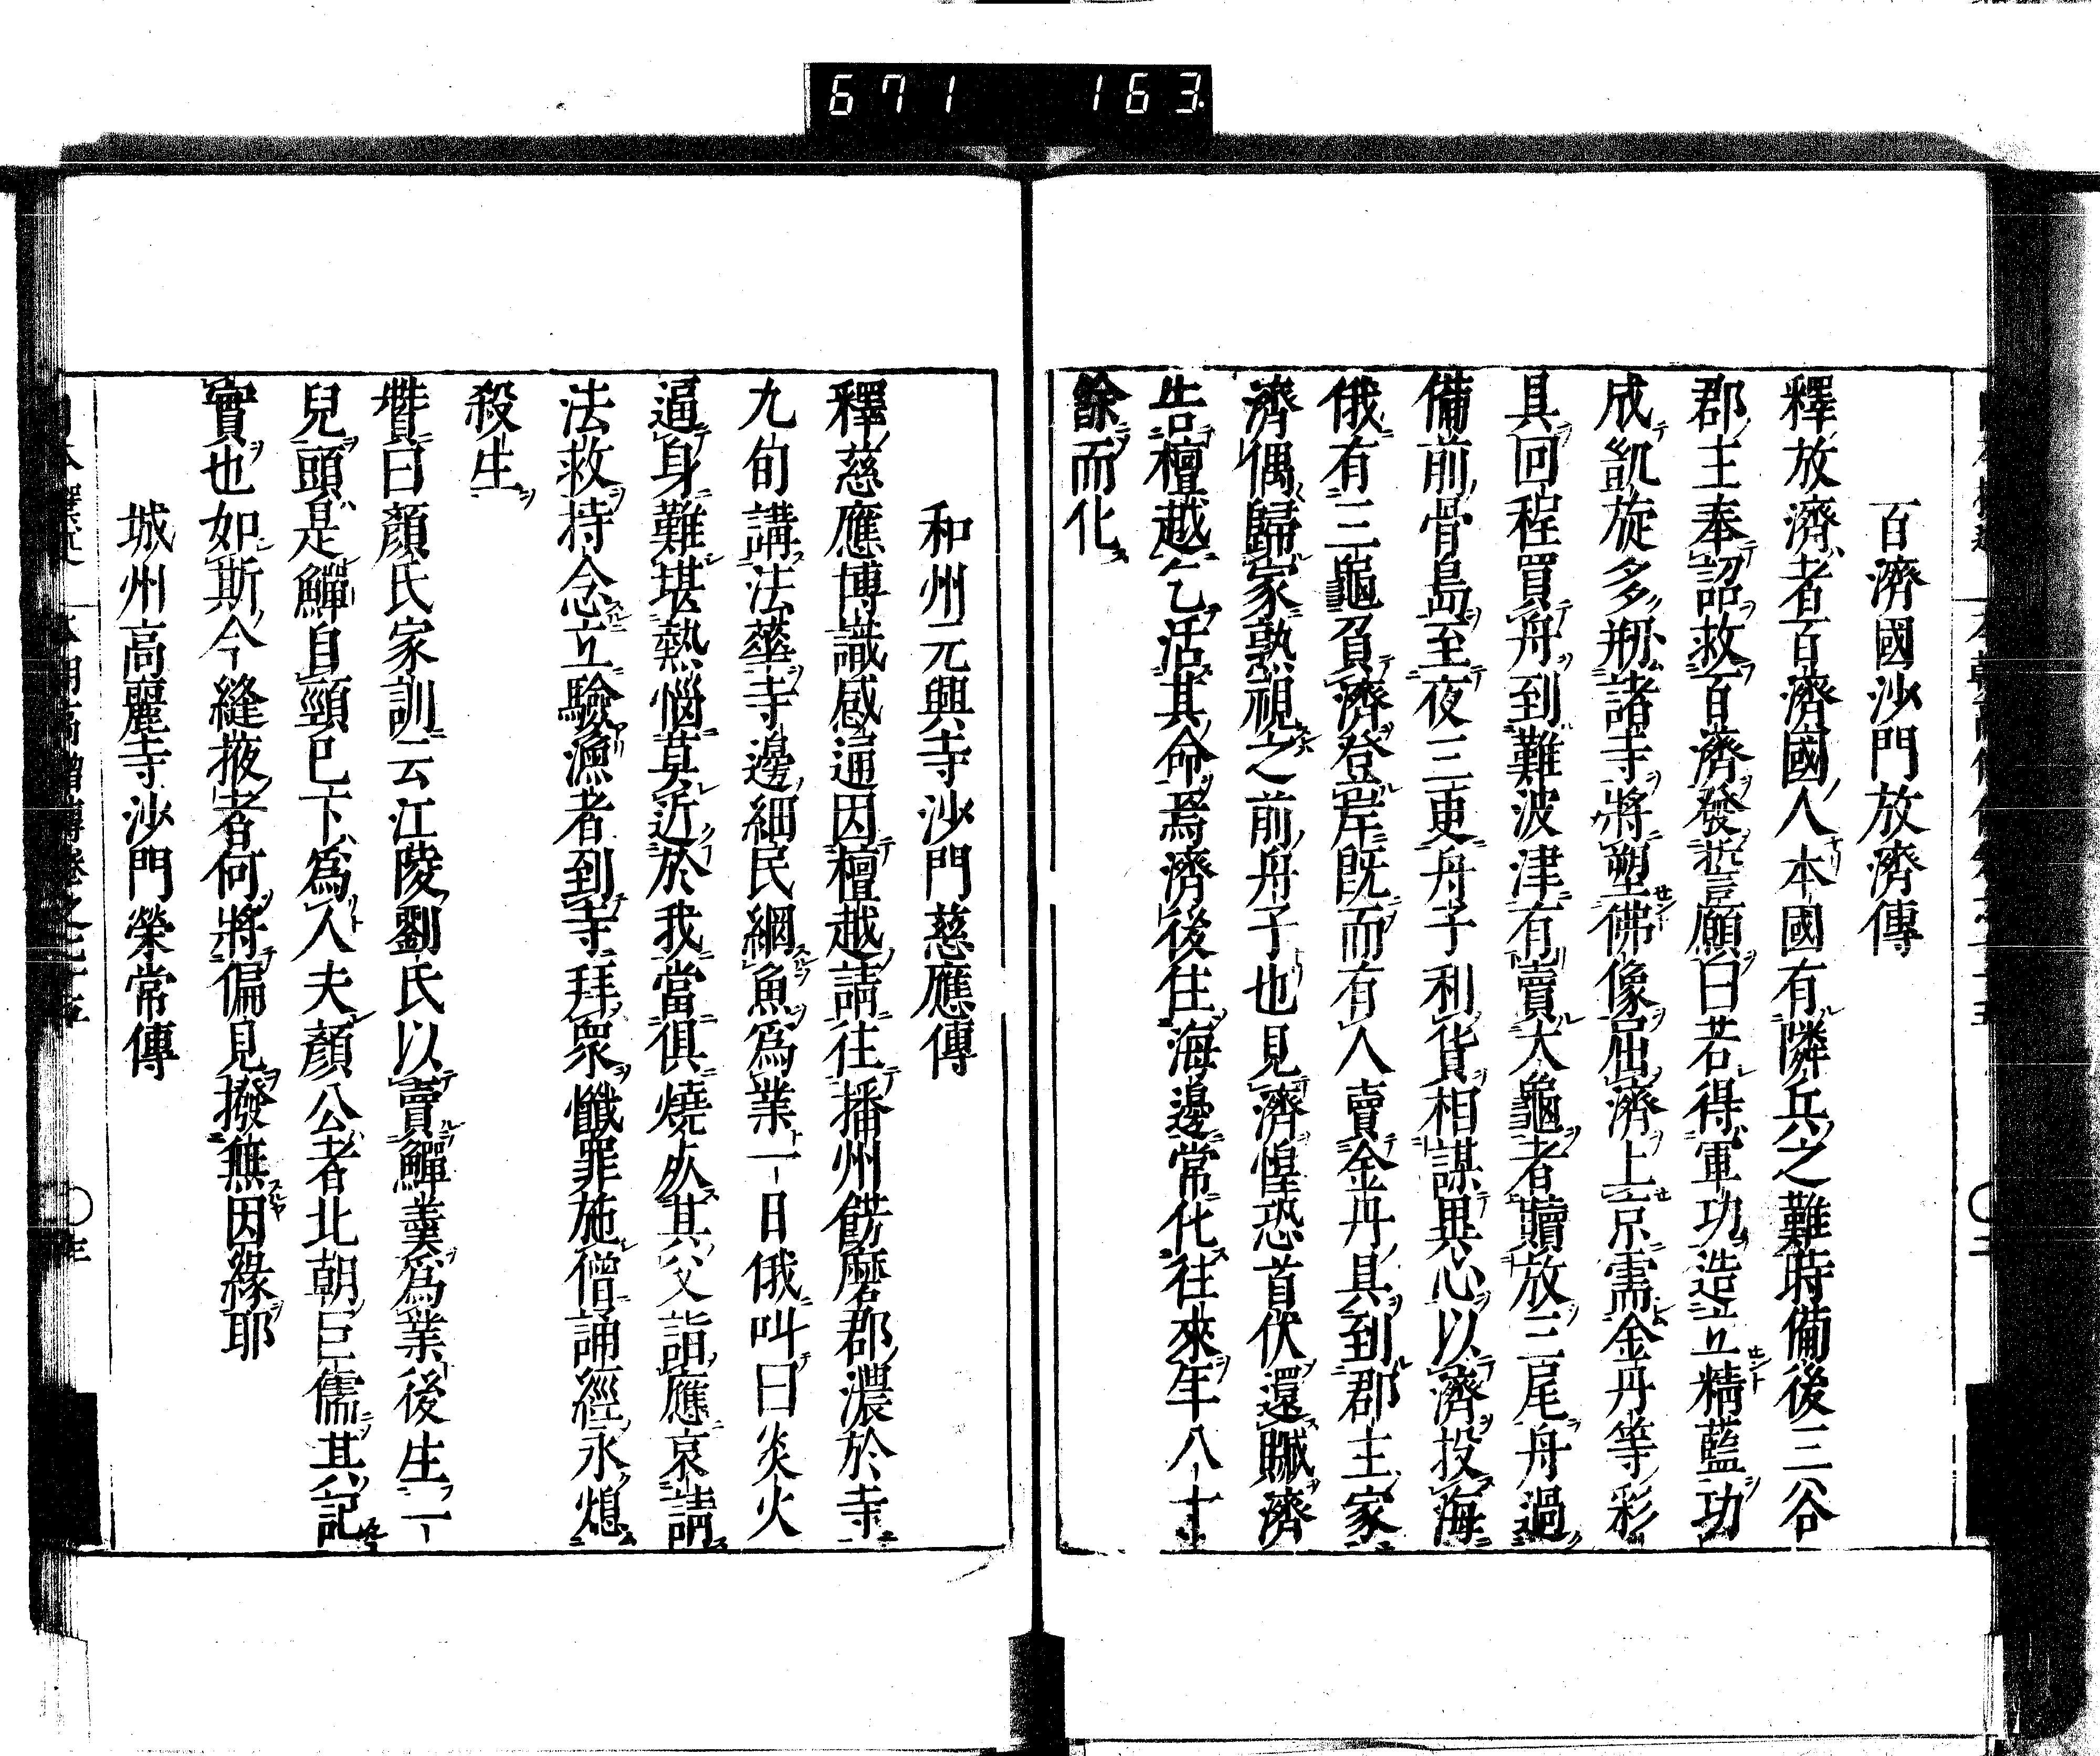 671 163
百濟國沙門放濟傳
釋放濟者百濟國人本國有隣兵之難時備後三谷
郡主奉詔救百濟發誓願曰若得軍功造立精藍功
成凱旋多刱諸寺將塑佛像屈濟上京需金丹等彩
具回程買舟到難波津有賣大龜者贖放三尾舟過
備前骨島至夜三更舟子利貨相謀異心以濟投海
俄有三龜負濟登岸既而有人賣金丹具到郡主家
濟偶歸家熟視之前舟子也見濟惶恐首伏還贓濟
告檀越乞活其命焉濟後住海邊常化往來年八十
餘而化
和州元興寺沙門慈應傳
釋慈應博識感通因檀越請往播州餝磨郡濃於寺
九旬講法華寺邊細民網魚為業一日俄叫曰炎火
逼身難堪熱惱莫近於我當俱燒灰其父詣應哀請
法救持念立驗漁者到寺拜衆懺罪施僧誦經永熄
殺生
贊曰顏氏家訓云江陵劉氏以賣鱓羹為業後生一
兒頭是鱓自頸已下為人夫顏公者北朝巨儒其記
實也如斯今縫掖者何將偏見撥無因緣耶
城州高麗寺沙門榮常傳